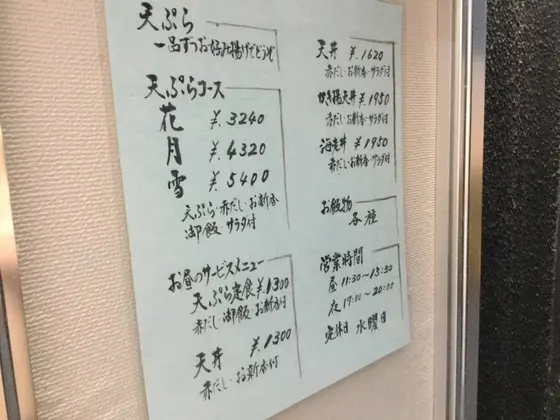 天ぷら
一品ずつお好み揚げでどうぞ
天ぷらコース
花 ¥.3240
月 ¥.4320
雪 ¥.5400
天ぷら・赤だし・お新香
御飯 サラダ付
お昼のサービスメニュー
天ぷら定食 ¥.1300
赤だし・御飯・お新香付
天丼 ¥.1300
赤だし・お新香付
天丼 ¥.1620
赤だし・お新香・サラダ付
かき揚天丼 ¥.1950
赤だし・お新香・サラダ付
海老丼 ¥.1950
赤だし・お新香・サラダ付
お飲物
各種
営業時間
昼 11:30〜13:30
夜 17:00〜20:00
定休日 水曜日